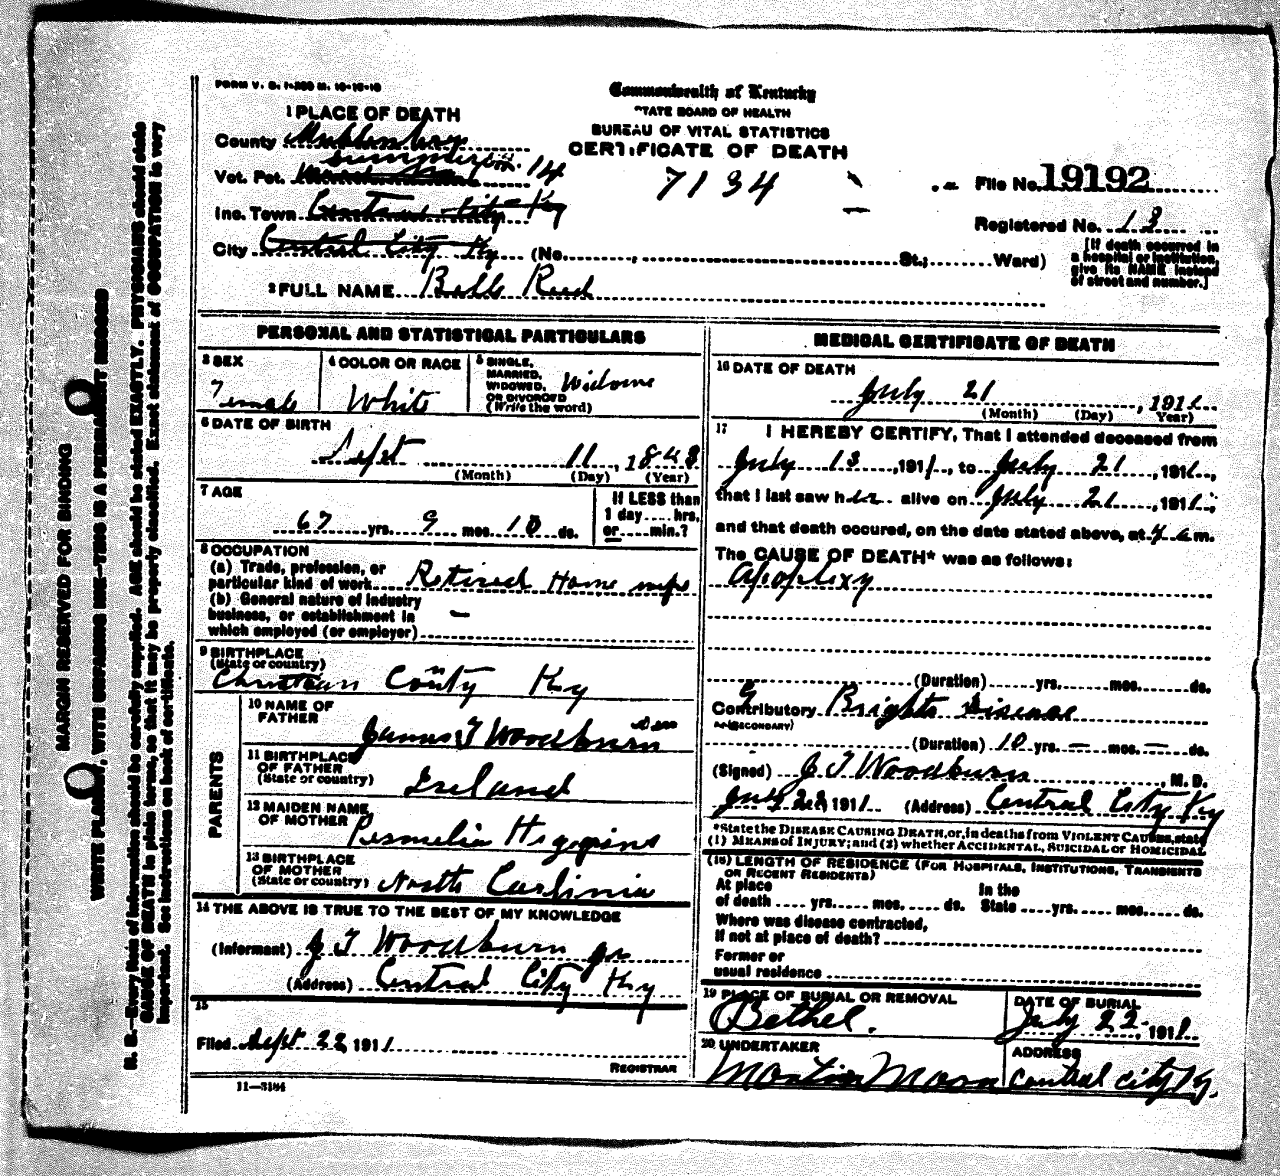 FORM V. S. 1-200 M. 10-10-10
Commonwealth of Kentucky
STATE BOARD OF HEALTH
BUREAU OF VITAL STATISTICS
CERTIFICATE OF DEATH
7134
File No. 19192
Registered No. 13
[If death occurred in
a hospital or institution,
give its NAME instead
of street and number.]
1 PLACE OF DEATH
County
Vot. Pct. 14
Inc. Town Central City Ky
City Central City Ky (No. , St.; Ward)
2 FULL NAME Belle Reed
PERSONAL AND STATISTICAL PARTICULARS
3 SEX
Female
4 COLOR OR RACE
White
5 SINGLE,
MARRIED,
WIDOWED,
OR DIVORCED
(Write the word)
Widowe
6 DATE OF BIRTH
Sept 11, 1843
(Month) (Day) (Year)
7 AGE
67 yrs. 9 mos. 10 ds.
If LESS than
1 day ..... hrs.
or ..... min.?
8 OCCUPATION
(a) Trade, profession, or
particular kind of work Retired House wife
(b) General nature of industry
business, or establishment in
which employed (or employer) —
9 BIRTHPLACE
(State or country)
Christian County Ky
PARENTS
10 NAME OF
FATHER
James T Woodburn
11 BIRTHPLACE
OF FATHER
(State or country)
Ireland
12 MAIDEN NAME
OF MOTHER
Higgins
13 BIRTHPLACE
OF MOTHER
(State or country) North Carlinia
14 THE ABOVE IS TRUE TO THE BEST OF MY KNOWLEDGE
(Informant) J T Woodburn Jr
(Address) Central City Ky
15
Filed Sept 22, 1911
REGISTRAR
11—3184
MEDICAL CERTIFICATE OF DEATH
16 DATE OF DEATH
July 21, 1911
(Month) (Day) Year)
17 I HEREBY CERTIFY, That I attended deceased from
July 13, 1911, to July 21, 1911,
that I last saw her alive on July 21, 1911,
and that death occured, on the date stated above, at 4 a m.
The CAUSE OF DEATH* was as follows:
Apoplixy
(Duration) yrs. mos. ds.
Contributory Brights Disease
(SECONDARY)
(Duration) 10 yrs. — mos. — ds.
(Signed) J T Woodburn, M. D.
July 22, 1911 (Address) Central City Ky
*State the DISEASE CAUSING DEATH, or, in deaths from VIOLENT CAUSES, state
(1) MEANS of INJURY; and (2) whether ACCIDENTAL, SUICIDAL or HOMICIDAL.
(18) LENGTH OF RESIDENCE (FOR HOSPITALS, INSTITUTIONS, TRANSIENTS
OR RECENT RESIDENTS)
At place
of death ..... yrs. ..... mos. ..... ds.
In the
State ..... yrs. ..... mos. ..... ds.
Where was disease contracted,
if not at place of death?
Former or
usual residence
19 PLACE OF BURIAL OR REMOVAL
Bethel.
DATE OF BURIAL
July 22, 1911
20 UNDERTAKER
Martin Moore
ADDRESS
Central City Ky.
MARGIN RESERVED FOR BINDING
WRITE PLAINLY, WITH UNFADING INK—THIS IS A PERMANENT RECORD
N. B.—Every item of information should be carefully supplied. AGE should be stated EXACTLY. PHYSICIANS should state
CAUSE OF DEATH in plain terms, so that it may be properly classified. Exact statement of OCCUPATION is very
important. See instructions on back of certificate.